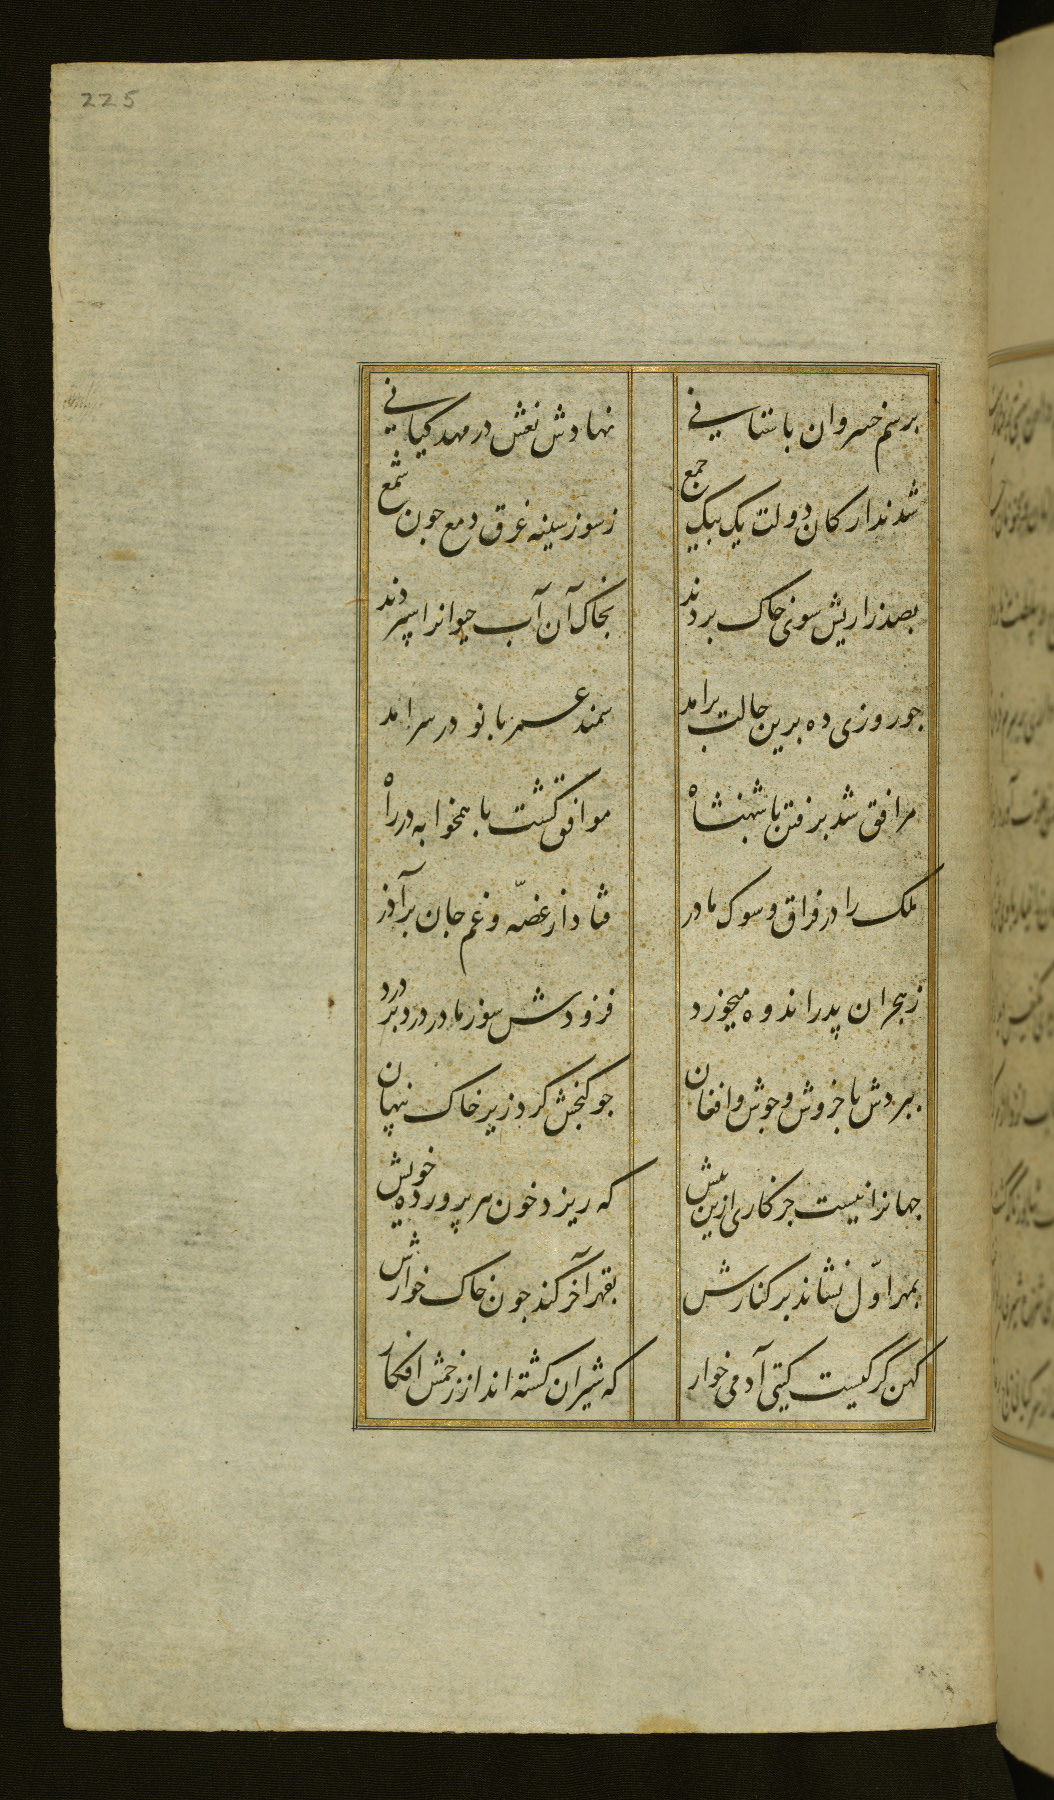 225
برسم خسروان باستانی نهادش نعش در مهد کیانی
شدند ارکان دولت یک بیک جمع ز سوز سینه غرق دمع چون شمع
بصد زاریش سوی خاک بردند بخاک آن آب حیوانرا سپردند
چو روزی ده برین حالت برامد سمند عمر بانو در سر امد
مرافق شد برفتن با شهنشاه موافق گشت با همخوابه در راه
ملک را در فراق و سوک مادر فتاد از غصّه و غم جان برآذر
ز هجران پدر اندوه میخورد فزودش سوز مادر درد بر درد
ببردش با خروش و جوش و افغان چو گنجش کرد زیر خاک پنهان
جهانرا نیست جز کاری ازین بیش که ریزد خون هر پرورده خویش
بمهر اوّل نشاند بر کنارش بقهر آخر کند چون خاک خوارش
کهن گرگیست گیتی آدمی خوار که شیران گشته اند از زخمش افکار